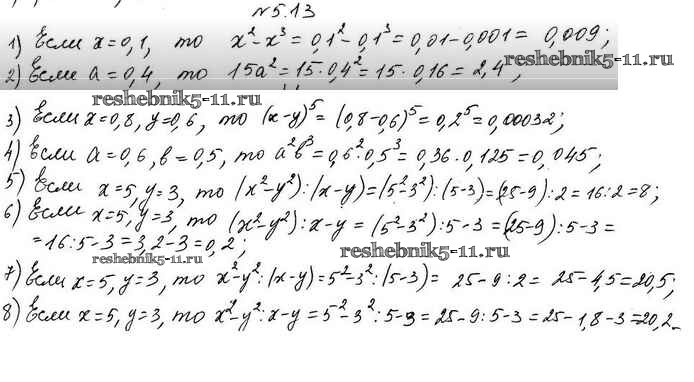 №5.13
1) Если x=0,1, то x²-x³=0,1²-0,1³=0,01-0,001=0,009;
reshebnik5-11.ru
2) Если a=0,4, то 15a²=15·0,4²=15·0,16=2,4;
reshebnik5-11.ru
3) Если x=0,8, y=0,6, то (x-y)⁵=(0,8-0,6)⁵=0,2⁵=0,00032;
4) Если a=0,6, b=0,5, то a²b³=0,6²·0,5³=0,36·0,125=0,045;
5) Если x=5, y=3, то (x²-y²):(x-y)=(5²-3²):(5-3)=(25-9):2=16:2=8;
6) Если x=5, y=3, то (x²-y²):x-y=(5²-3²):5-3=(25-9):5-3=
=16:5-3=3,2-3=0,2;
reshebnik5-11.ru
reshebnik5-11.ru
7) Если x=5, y=3, то x²-y²:(x-y)=5²-3²:(5-3)=25-9:2=25-4,5=20,5;
8) Если x=5, y=3, то x²-y²:x-y=5²-3²:5-3=25-9:5-3=25-1,8-3=20,2.